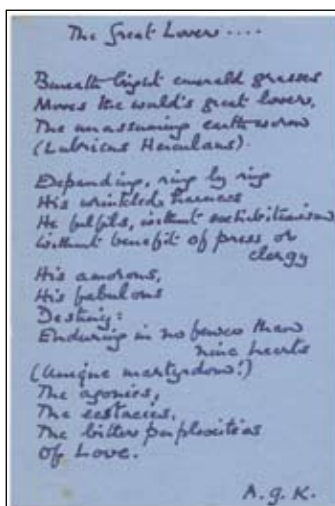 The Great Lovers ....
Beneath bright emerald grasses
Moves the world's great lovers,
The unassuming earthworm
(Lubricus Herculans).
Depending, ring by ring
His wrinkled harness
He fulfils, without exhibitionism
without benefit of press or
clergy
His amorous,
His fabulous
Destiny:
Enduring in no fewer than
nine hearts
(Unique martyrdom!)
The agonies,
The ecstacies,
The bitter perplexities
Of Love.
A.G.K.